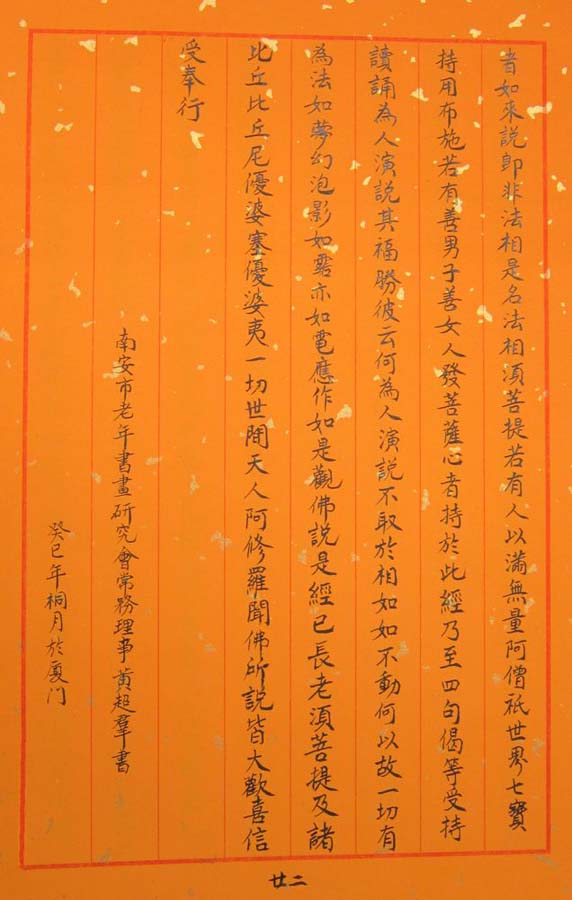 者如來說即非法相是名法相須菩提若有人以滿無量阿僧祇世界七寶
持用布施若有善男子善女人發菩薩心者持於此經乃至四句偈等受持
讀誦為人演說其福勝彼云何為人演說不取於相如如不動何以故一切有
為法如夢幻泡影如露亦如電應作如是觀佛說是經已長老須菩提及諸
比丘比丘尼優婆塞優婆夷一切世間天人阿修羅聞佛所說皆大歡喜信
受奉行
南安市老年書畫研究會常務理事黃超群書
癸巳年桐月於厦门
廿二